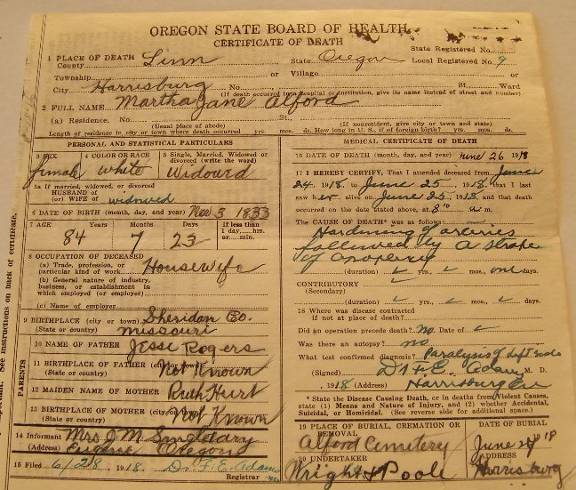 OREGON STATE BOARD OF HEALTH
CERTIFICATE OF DEATH
1 PLACE OF DEATH
County Linn State Oregon
State Registered No.
Local Registered No. 9
Township or Village or
City Harrisburg No. St. Ward
(If death occurred in a hospital or institution, give its name instead of street and number)
2 FULL NAME Martha Jane Alford
(a) Residence. No. St.
(Usual place of abode) (If nonresident, give city or town and state)
Length of residence in city or town where death occurred yrs. mos. ds. How long in U. S., if of foreign birth? yrs. mos. ds.
PERSONAL AND STATISTICAL PARTICULARS
3 SEX 4 COLOR OR RACE 5 Single, Married, Widowed or
divorced (write the word)
female white Widowd
5a If married, widowed, or divorced
HUSBAND of
(or) WIFE of widowed
6 DATE OF BIRTH (month, day, and year) Nov 3 1833
7 AGE Years Months Days If less than
1 day, hrs.
or min.
84 7 23
8 OCCUPATION OF DECEASED
(a) Trade, profession, or
particular kind of work Housewife
(b) General nature of industry,
business, or establishment in
which employed (or employer)
(c) Name of employer
9 BIRTHPLACE (city or town) Sheridan Co.
(State or country) Missouri
PARENTS
10 NAME OF FATHER Jesse Rogers
11 BIRTHPLACE OF FATHER (city or town) Not Known
(State or country)
12 MAIDEN NAME OF MOTHER Ruth Hurt
13 BIRTHPLACE OF MOTHER (city or town) Not Known
(State or country)
14 Informant Mrs J M
(Address) Eugene Oregon
15 Filed 6/28 1918. Dr F. E. Adams
Registrar
MEDICAL CERTIFICATE OF DEATH
16 DATE OF DEATH (month, day, and year) June 26 1918
17 I HEREBY CERTIFY, That I attended deceased from June
24 1918 to June 25 1918 that I last
saw her alive on June 25 1918 and that death
occurred on the date stated above, at 8 m.
The CAUSE OF DEATH* was as follows:
Hardning of arteries
followed by a stroke
of
(duration) yrs. mos. one days.
CONTRIBUTORY
(Secondary)
(duration) yrs. mos. ds.
18 Where was disease contracted
if not at place of death?
Did an operation precede death? No Date of
Was there an autopsy? no
What test confirmed diagnosis? Paralysis of left side
(Signed) Dr F. E. Adams M. D.
1918 (Address) Harrisburg Ore
* State the Disease Causing Death, or in deaths from Violent Causes,
state (1) Means and Nature of Injury, and (2) whether Accidental,
Suicidal, or Homicidal. (See reverse side for additional space.)
19 PLACE OF BURIAL, CREMATION OR
REMOVAL
DATE OF BURIAL
Alford Cemetery June 1918
20 UNDERTAKER ADDRESS
Wright & Poole Harrisburg
See instructions on back of certificate.